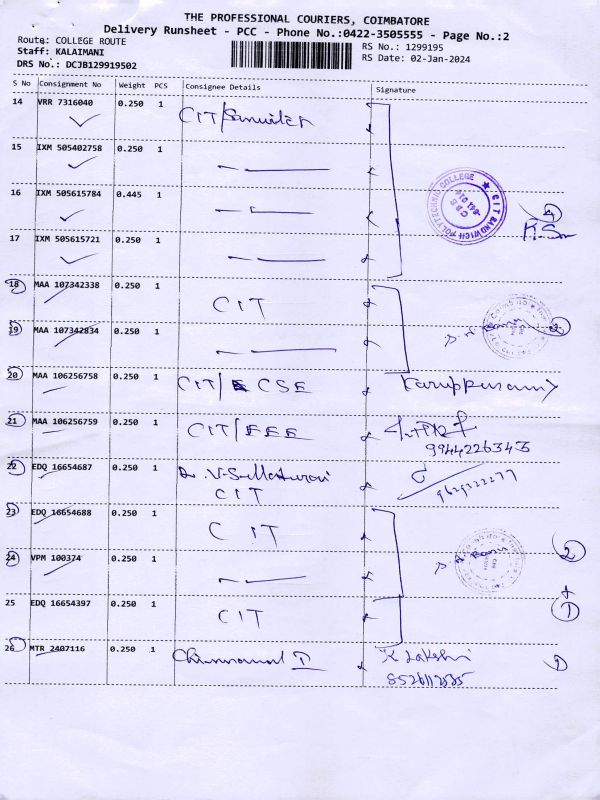 THE PROFESSIONAL COURIERS, COIMBATORE
Delivery Runsheet - PCC - Phone No.:0422-3505555 - Page No.:2
Route: COLLEGE ROUTE
Staff: KALAIMANI
DRS No.: DCJB129919502
RS No.: 1299195
RS Date: 02-Jan-2024
S No Consignment No Weight PCS Consignee Details Signature
14 VRR 7316040 0.250 1 CIT/
15 IXM 505402758 0.250 1
16 IXM 505615784 0.445 1
17 IXM 505615721 0.250 1
CIT SANDWICH POLYTECHNIC COLLEGE
4
18 MAA 107342338 0.250 1 CIT
19 MAA 107342834 0.250 1
2
20 MAA 106256758 0.250 1 CIT/ CSE
21 MAA 106256759 0.250 1 CIT/EEE
9944226343
22 EDQ 16654687 0.250 1 Dr. V.
CIT
23 EDQ 16654688 0.250 1 CIT
24 VPM 100374 0.250 1
2
25 EDQ 16654397 0.250 1 CIT
1
26 MTR 2407116 0.250 1